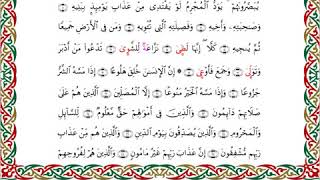 يُبَصَّرُونَهُمْ ۚ يَوَدُّ ٱلْمُجْرِمُ لَوْ يَفْتَدِى مِنْ عَذَابِ يَوْمِئِذٍۭ بِبَنِيهِ
وَصَـٰحِبَتِهِۦ وَأَخِيهِ وَفَصِيلَتِهِ ٱلَّتِى تُـْٔوِيهِ وَمَن فِى ٱلْأَرْضِ جَمِيعًا
ثُمَّ يُنجِيهِ كَلَّآ ۖ إِنَّهَا لَظَىٰ نَزَّاعَةً لِّلشَّوَىٰ تَدْعُوا۟ مَنْ أَدْبَرَ
وَتَوَلَّىٰ وَجَمَعَ فَأَوْعَىٰٓ إِنَّ ٱلْإِنسَـٰنَ خُلِقَ هَلُوعًا إِذَا مَسَّهُ ٱلشَّرُّ
جَزُوعًا وَإِذَا مَسَّهُ ٱلْخَيْرُ مَنُوعًا إِلَّا ٱلْمُصَلِّينَ ٱلَّذِينَ هُمْ عَلَىٰ
صَلَاتِهِمْ دَآئِمُونَ وَٱلَّذِينَ فِىٓ أَمْوَٰلِهِمْ حَقٌّ مَّعْلُومٌ لِّلسَّآئِلِ
وَٱلْمَحْرُومِ وَٱلَّذِينَ يُصَدِّقُونَ بِيَوْمِ ٱلدِّينِ وَٱلَّذِينَ هُم مِّنْ عَذَابِ
رَبِّهِم مُّشْفِقُونَ إِنَّ عَذَابَ رَبِّهِمْ غَيْرُ مَأْمُونٍ وَٱلَّذِينَ هُمْ لِفُرُوجِهِمْ